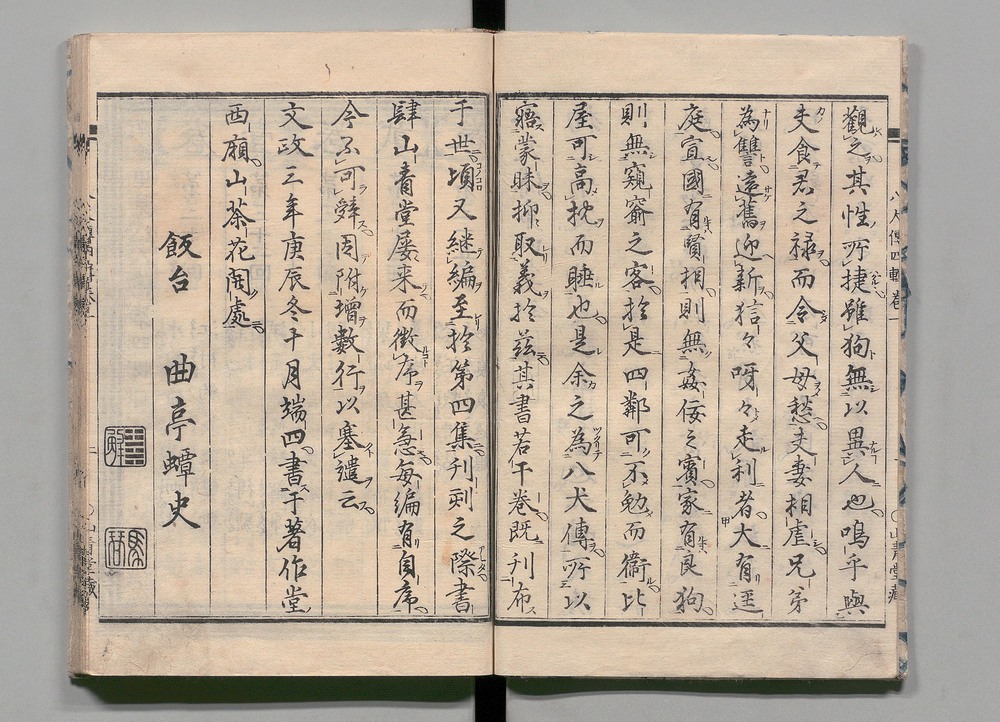 觀之其性所捷雖狗無以異人也嗚乎與
夫食君之祿而令父母愁夫妻相虐兄弟
為讐遠舊迎新狺々呀々走利者大有逕
庭宣國有賢相則無姦佞之賓家有良狗
則無窺窬之客於是四鄰可不勉而衞比
屋可高枕而睡也是余之為八犬傳所以
寤蒙昧抑取義於茲其書若干卷既刊布
于世頃又継編至於第四集刊刻之際書
肆山青堂屡来而徴序甚急每編有自序
今不可辭因附增數行以塞譴云
文政三年庚辰冬十月端四書于著作堂
西廂山茶花開處
飯台 曲亭蟫史
八犬傳四輯卷一
山青堂藏